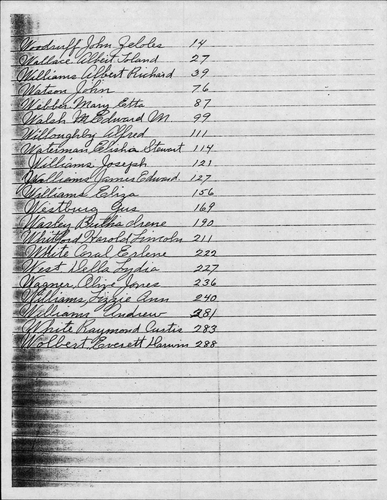 Woodruff, John Zeloles 14
Wallace, Albert Toland 27
Williams Albert Richard 39
Watson John 76
Webber Mary Etta 87
Walsh M. Edward M. 99
Willoughby Alfred 111
Waterman, Elisha Stewart 114
Williams, Joseph 121
Williams, James Edward 127
Williams Eliza 156
Westburg Gus 169
Wasley Bertha Irene 190
Whitford Harold Lincoln 211
White Coral Erlene 222
West Della Lydia 227
Wagner, Olive Jones 236
Williams, Lizzie Ann 240
Williams Andrew 281
White Raymond Curtis 283
Wolbert, Everett Darwin 288